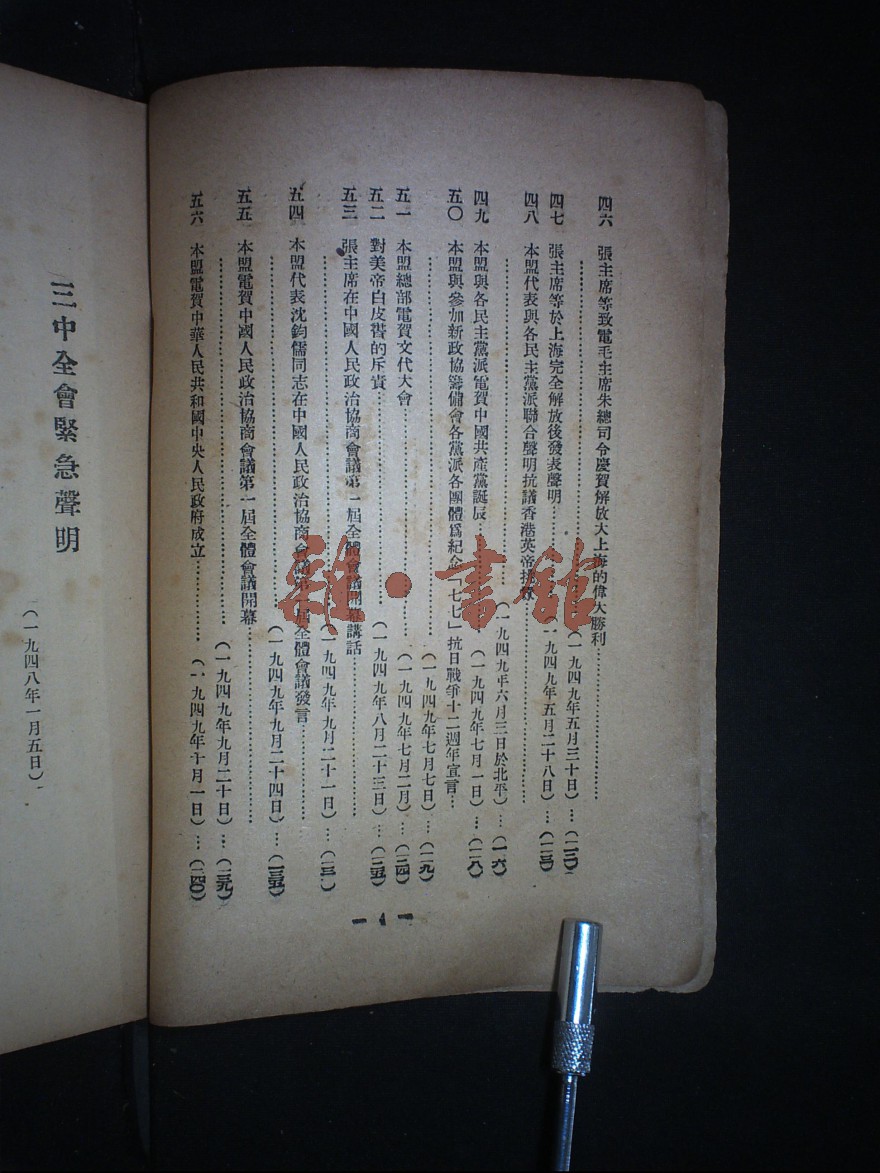 四六　張主席等致電毛主席朱總司令慶賀解放大上海的偉大勝利…………
…………(一九四九年五月三十日)…
四七　張主席等於上海完全解放後發表聲明…………(一九四九年五月二十八日)…
四八　本盟代表與各民主黨派聯合聲明抗議香港英帝…………
…………(一九四九年六月三日於北平)…
四九　本盟與各民主黨派電賀中國共產黨誕辰…………(一九四九年七月一日)…
五〇　本盟與參加新政協籌備會各黨派各團體爲紀念「七七」抗日戰爭十二週年宣言…
…………(一九四九年七月七日)…
五一　本盟總部電賀文代大會…………(一九四九年七月二月)…
五二　對美帝白皮書的斥責…………(一九四九年八月二十三日)…
五三　張主席在中國人民政治協商會議第一屆全體會議開幕講話…………
…………(一九四九年九月二十一日)…
五四　本盟代表沈鈞儒同志在中國人民政治協商會議第一屆全體會議發言…………
…………(一九四九年九月二十四日)…
五五　本盟電賀中國人民政治協商會議第一屆全體會議開幕…………
…………(一九四九年九月二十日)…(二三九)
五六　本盟電賀中華人民共和國中央人民政府成立…………(一九四九年十月一日)…(二四〇)
— 4 —
三中全會緊急聲明
(一九四八年一月五日)
雜·書館